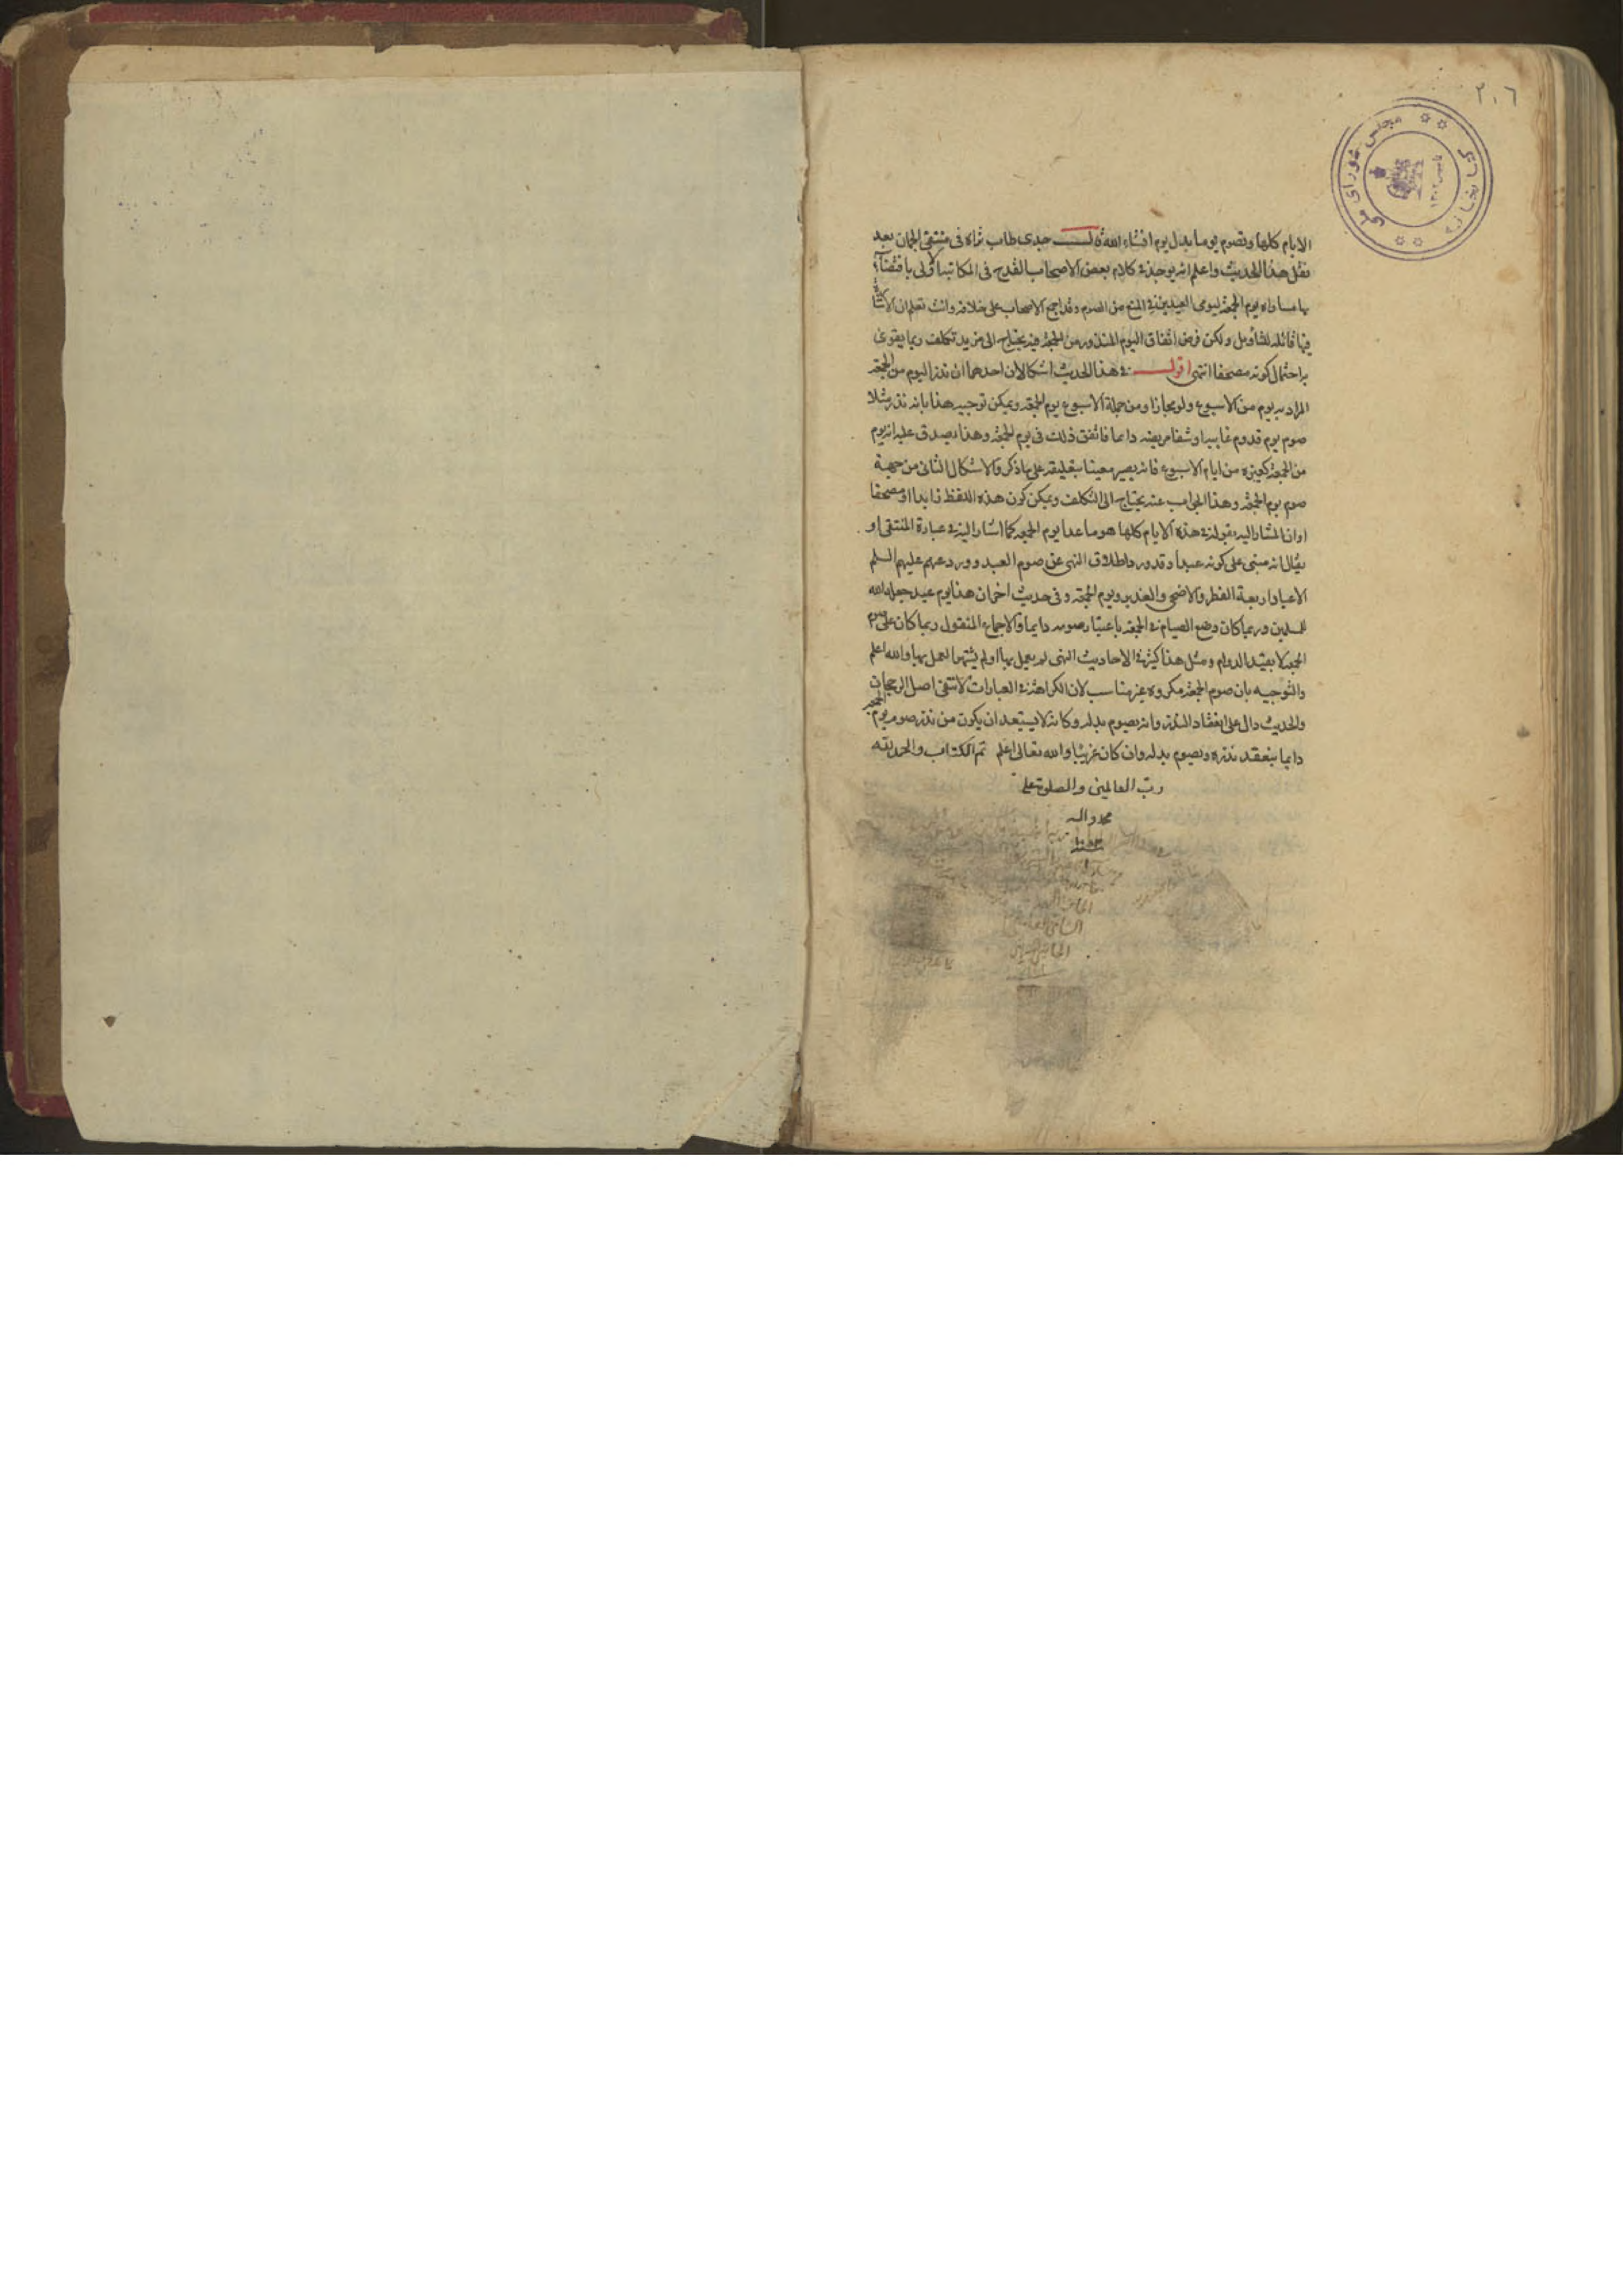 ٢٠٦
مجلس شورای ملی
کتابخانه
الايام كلها وتصوم يوما بدل يوم انشاء الله قال جدى طاب ثراه فى منتقى الجمان بعد
نقل هذا الحديث واعلم انه يوجد فى كلام بعض الاصحاب القدح فى المكاتبة الاولى باقتضائها
مساواة يوم الجمعة ليومى العيدين فى المنع من الصوم وقد اجمع الاصحاب على خلافه وانت تعلم ان الاشا
فيها قابلة للتأويل ولكن فرض اتفاق اليوم المنذور من الجمعة فيه يحتاج الى مزيد تكلف ربما يقوى
به احتمال كونه مصحفا انتهى اقول فى هذا الحديث اشكالان احدهما ان نذر اليوم من الجمعة
المراد به يوم من الاسبوع ولو مجازا ومن جملة الاسبوع يوم الجمعة ويمكن توجيه هذا بانه نذر مثلا
صوم يوم قدوم غايبه او شفا مريضه دايما فاتفق ذلك فى يوم الجمعة وهذا يصدق عليه انه يوم
من الجمعة كغيره من ايام الاسبوع فانه يصير معينا بتعليقه على ما ذكر والاشكال الثانى من جهة
صوم يوم الجمعة وهذا الجواب عنه يحتاج الى التكلف ويمكن كون هذه اللفظ زايدا او مصحفا
او ان المشار اليه بقوله فى هذه الايام كلها هو ما عدا يوم الجمعة كما اشار اليه فى عبارة المنتقى او
يقال انه مبنى على كونه عيدا وقد ورد اطلاق النهى عن صوم العيد وورد عنهم عليهم السلم
الاعياد اربعة الفطر والاضحى والغدير ويوم الجمعة وفى حديث اخر ان هذا يوم عيد جعله الله
للمسلمين وربما كان وضع الصيام فى الجمعة باعتبار صومه دايما والاجماع المنقول ربما كان على صوم
الجمعة لا بقيد الدوام ومثل هذا كثير فى الاحاديث التى لم يعمل بها او لم يشتهر العمل بها والله اعلم
والتوجيه بان صوم الجمعة مكروه غير مناسب لان الكراهة فى العبادات لا تنفى اصل الرجحان
والحديث دال على انعقاد النذر وانه يصوم بدله وكانه لا يستبعد ان يكون من نذر صوم يوم الجمعة
دايما ينعقد نذره ويصوم بدله وان كان غريبا والله تعالى اعلم تم الكتاب والحمد لله
رب العالمين والصلوة على
محمد واله